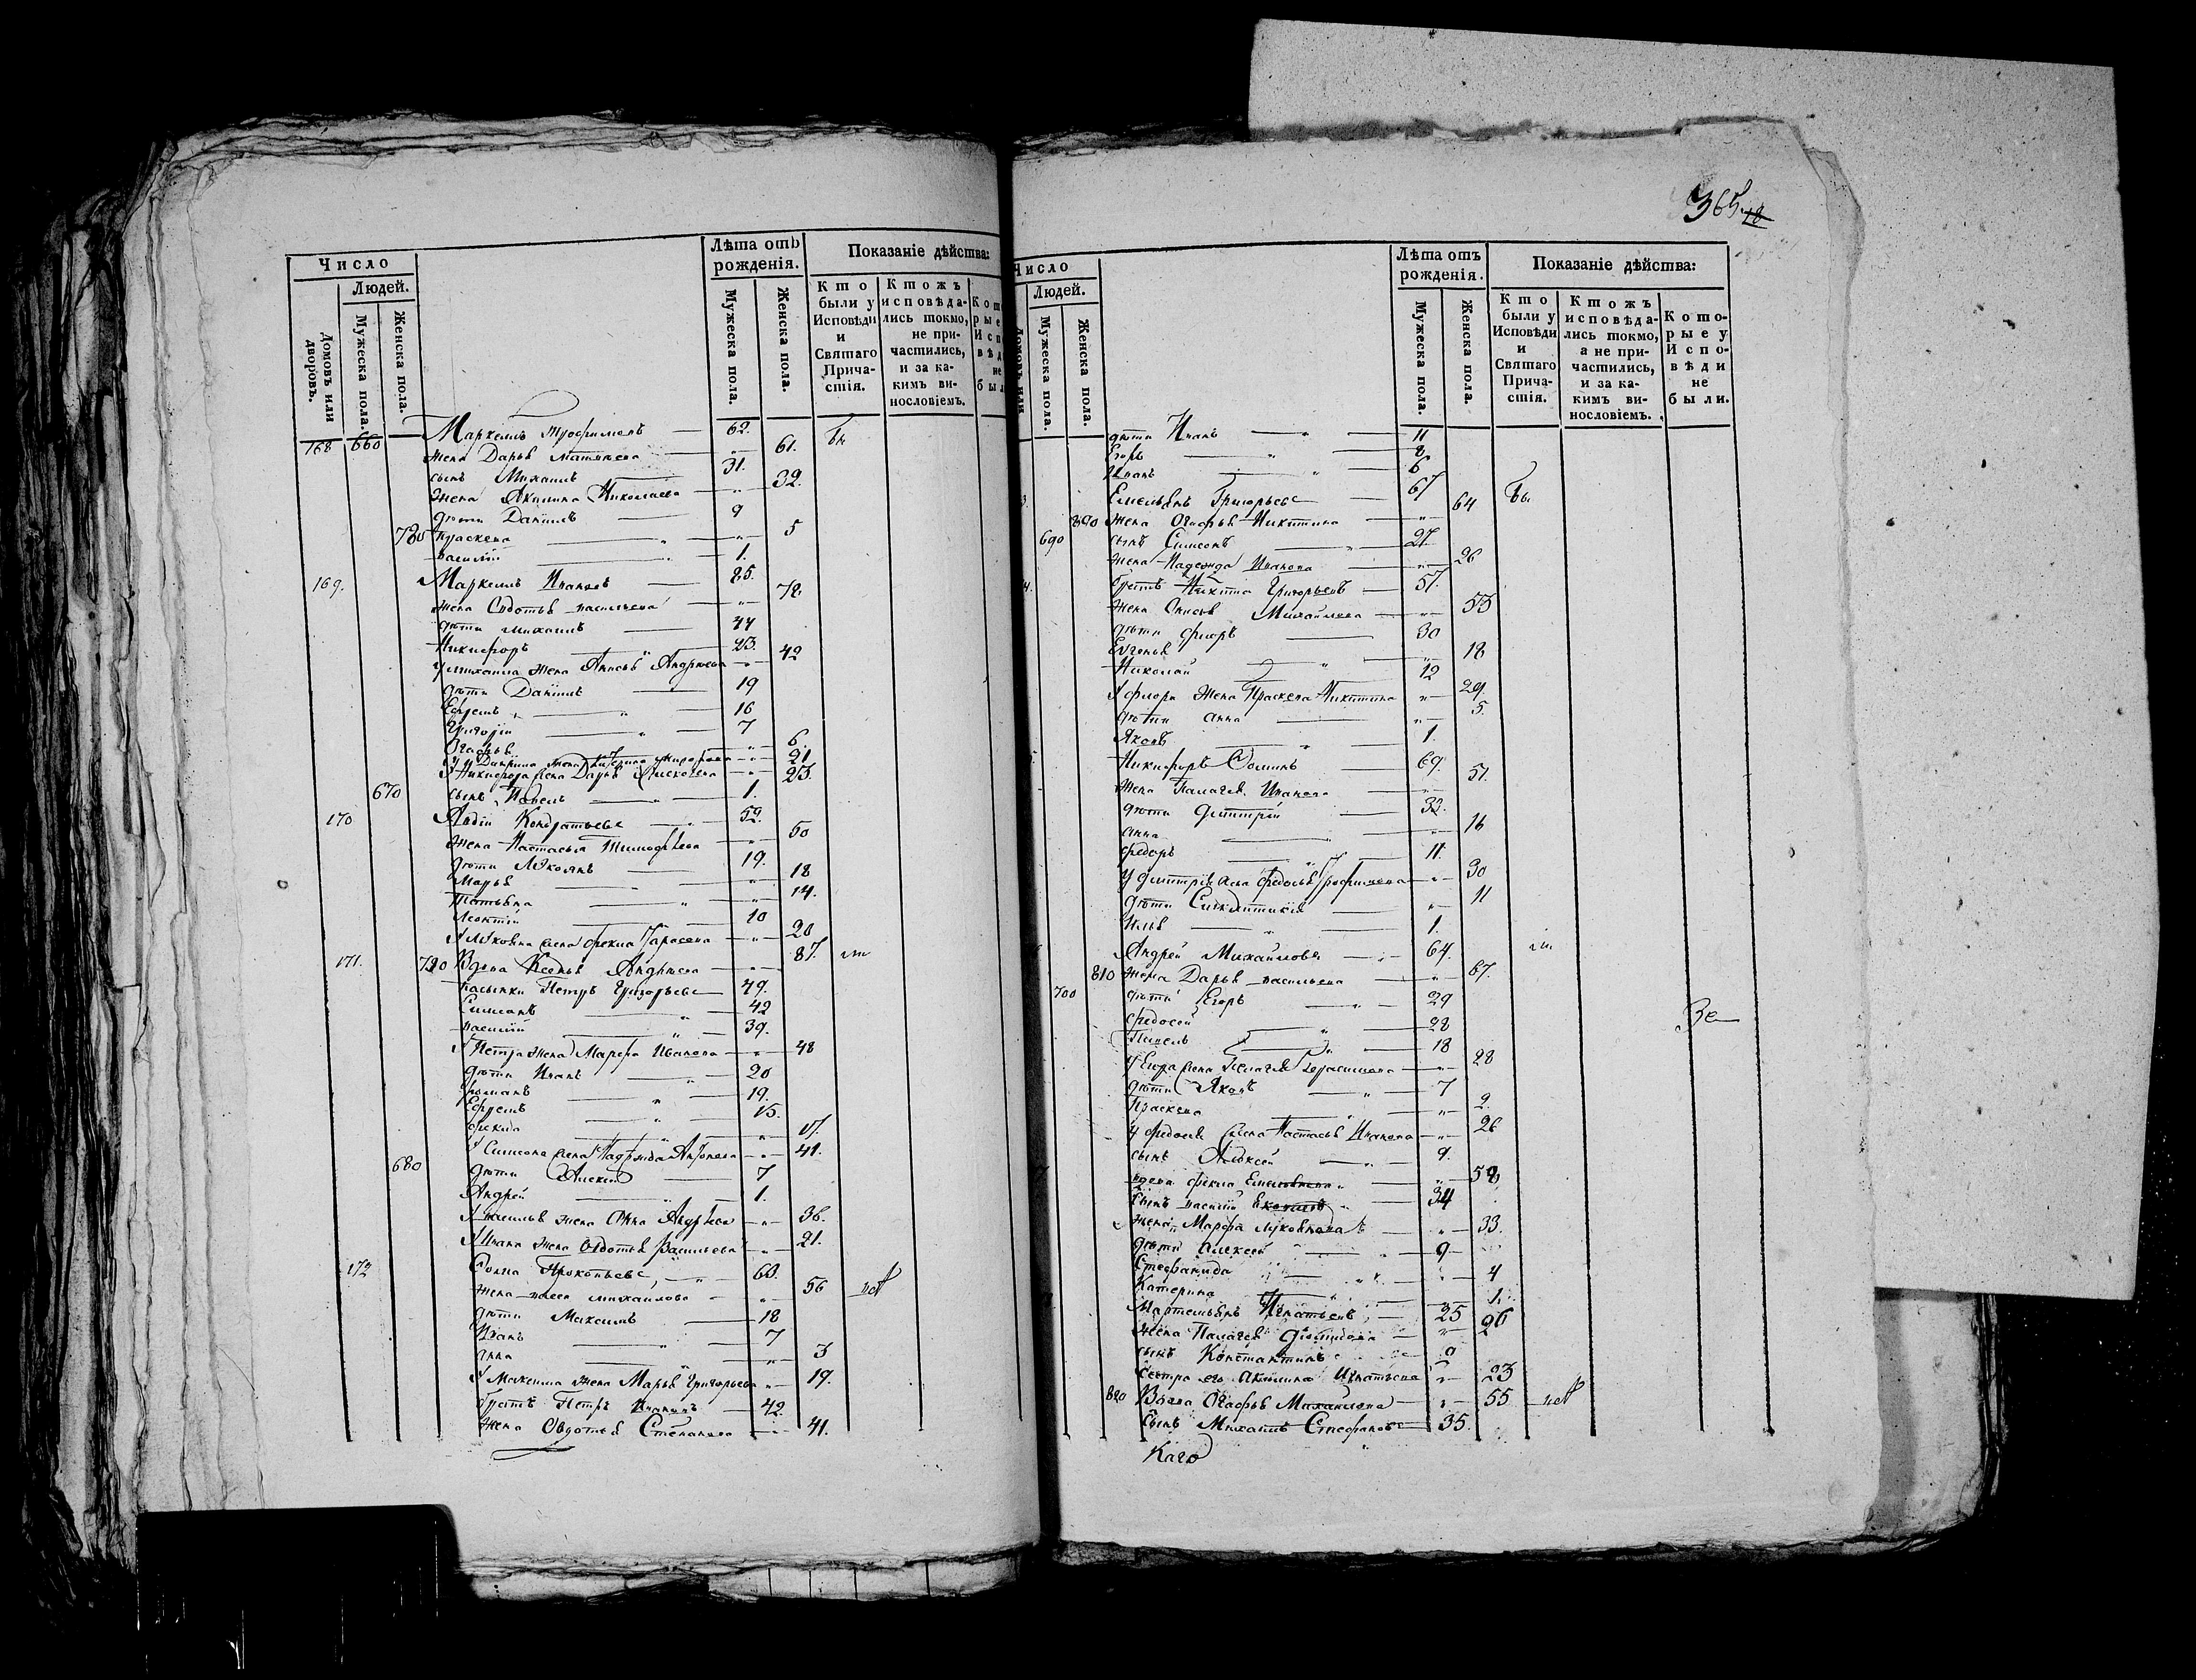 Число
Людей.
Домовъ или дворовъ.
Мужеска пола.
Женска пола.
Лѣта отъ рожденія.
Мужеска пола.
Женска пола.
Показаніе дѣйства:
Кто были у Исповѣди и Святаго Причастія.
Ктожъ исповѣдались токмо, не причастились, и за какимъ винословіемъ.
168 660 Маркелъ Трофимовъ 62.
жена Дарья Матвѣева 61.
сынъ Михаилъ 31.
жена Акилина Николаева 32.
дѣти Даніилъ 9
780 Праскева 5
Василій 1.
169. Маркелъ Ивановъ 85.
жена Евдотья Васильева 78
дѣти Михаилъ 44
Никифоръ 23.
у Михаила жена Анисья Андреева 42
дѣти Даніилъ 19
Ефремъ 16
Григорій 7
Агафья 6
у Даніила жена Катерина 21
у Никифора жена Дарья Алексеева 23.
670 сынъ Павелъ 1.
170 Авдій Кондратьевъ 52.
жена Настасья Тимофѣева 50
дѣти Лукоянъ 19.
Марья 18
Татьяна 14.
Леонтій 10
у Лукояна жена Фекла Тарасова 20
171. 790 Вдова Ксенья Андреева 87.
пасынки Петръ Григорьевъ 49.
Симеонъ 42
Василій 39.
у Петра жена Марфа Иванова 48
дѣти Иванъ 20
Романъ 19.
Ефремъ 15.
Фекла 17.
у Симеона жена Надежда Антонова 41.
680 дѣти Алексей 7
Андрей 1.
у Василья жена Анна Андрѣева 36.
у Ивана жена Авдотья Васильева 21.
172 Прокопьевъ 60.
жена Михайлова 56
дѣти Максимъ 18
Иванъ 7
Анна 3
у Максима жена Марья Григорьева 19.
братъ Петръ Ивановъ 42
жена Овдотья Степанова 41.
365
Число
Людей.
Мужеска пола.
Женска пола.
Лѣта отъ рожденія.
Мужеска пола.
Женска пола.
Показаніе дѣйства:
Кто были у Исповѣди и Святаго Причастія.
Ктожъ исповѣдались токмо, а не причастились, и за какимъ винословіемъ.
Которые у Исповѣди не были.
дѣти Иванъ 11
Егоръ 8
Иванъ 6
Емельянъ Григорьевъ 67
800 жена Огафья Никитина 64
690 сынъ Симеонъ 27.
жена Надежда Иванова 26
братъ Никита Григорьевъ 57.
жена Анисья Михайлова 53
дѣти Флоръ 30
Евгенья 18
Николай 12
у Флора жена Праскева Никитина 29.
дѣти Анна 5.
Яковъ 1.
Никифоръ Ѳоминъ 69.
жена Палагея Иванова 57.
дѣти Дмитрій 32.
Анна 16
Федоръ 11.
у Дмитрія жена Федосья Трофимова 30
дѣти Синклитикія 11
Илья 1.
Андрей Михайловъ 64.
810 жена Дарья Васильева 67.
700 дѣти Егоръ 29
Федосей 28
Павелъ 18
у Егора жена Пелагея Герасимова 28
дѣти Яковъ 7
Праскева 2.
у Федосея жена Настасья Иванова 26
сынъ Алексей 9.
вдова Фекла Емельянова
сынъ Василій 34
жена Марфа Лукоянова 33.
дѣти Алексей 9
Стефанида 4
Катерина 1.
Мартемьянъ Игнатьевъ 25
жена Палагея Демидова 26
сынъ Константинъ
сестра его Акилина Игнатьева 23
820 Вдова Огафья Михайлова 55
сынъ Михаилъ Стефановъ 35.